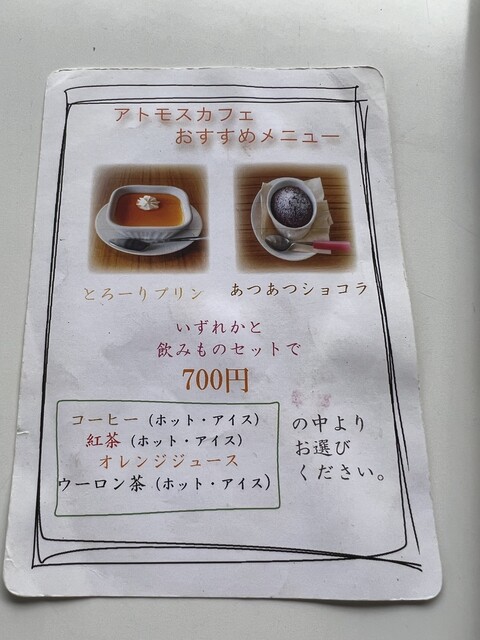 アトモスカフェ
おすすめメニュー
とろーりプリン
あつあつショコラ
いずれかと
飲みものセットで
700円
コーヒー（ホット・アイス）
紅茶（ホット・アイス）
オレンジジュース
ウーロン茶（ホット・アイス）
の中より
お選び
ください。